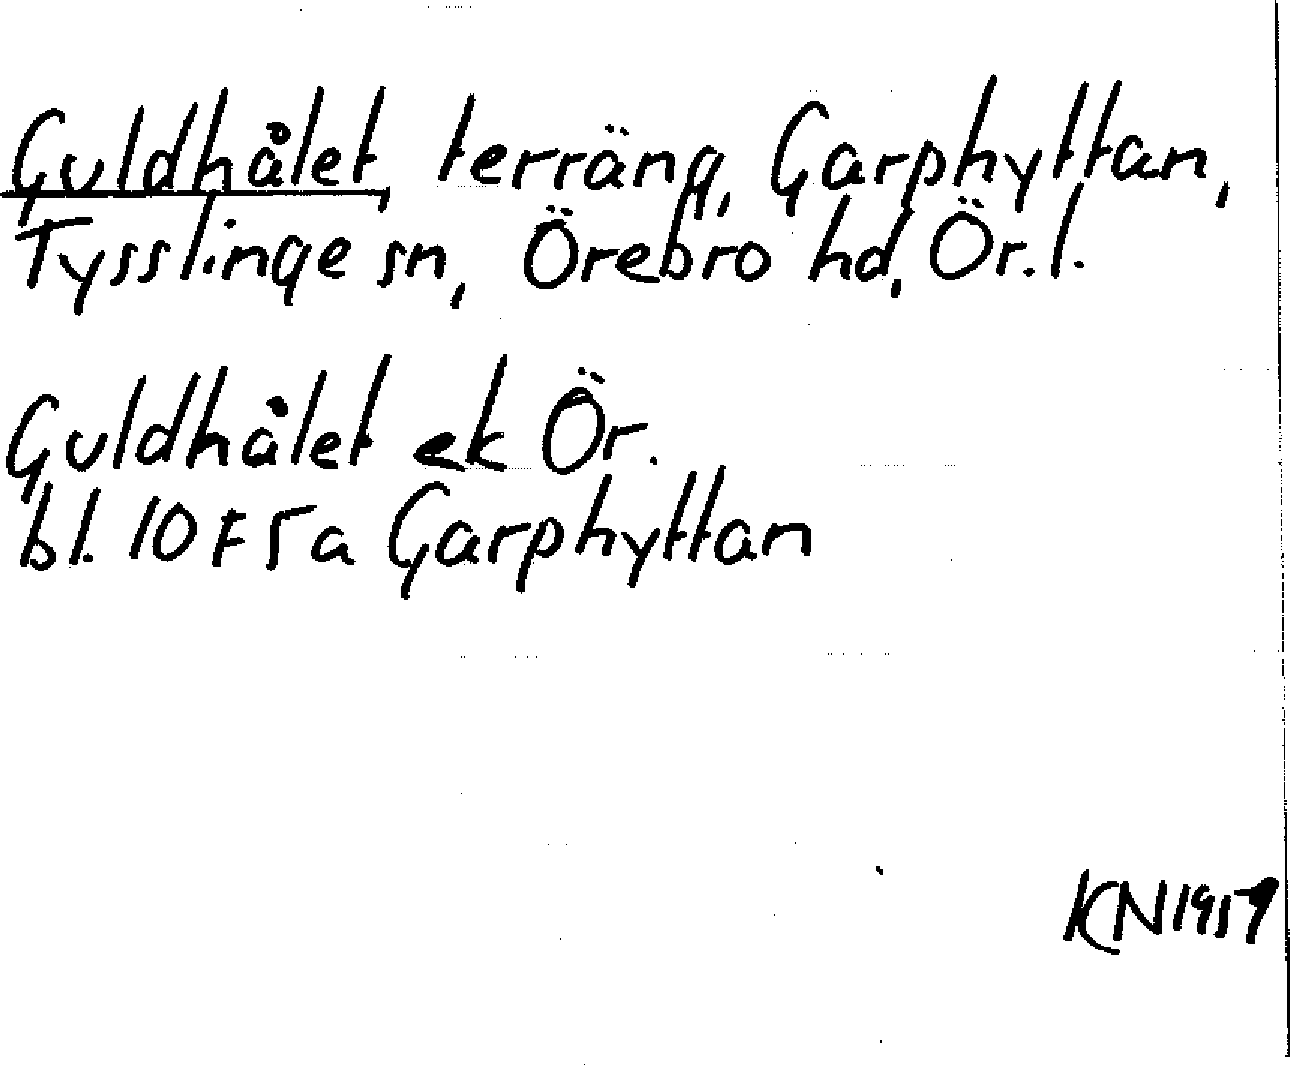 Guldhålet, terräng, Garphyttan,
Tysslinge sn, Örebro hd, Ör. l.
Guldhålet ek Ör.
bl. 10 F 5 a Garphyttan